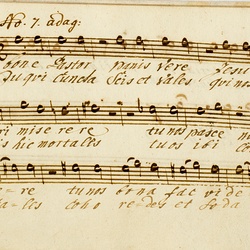 No. 7. adag:
bone Pastor panis vere Jesu
Tu qui cuncta Scis et vales qui nos
mise rere tu nos pasce
hic mortales tuos ibi
re tu nos bona fac vide
ales coho redes et Soda